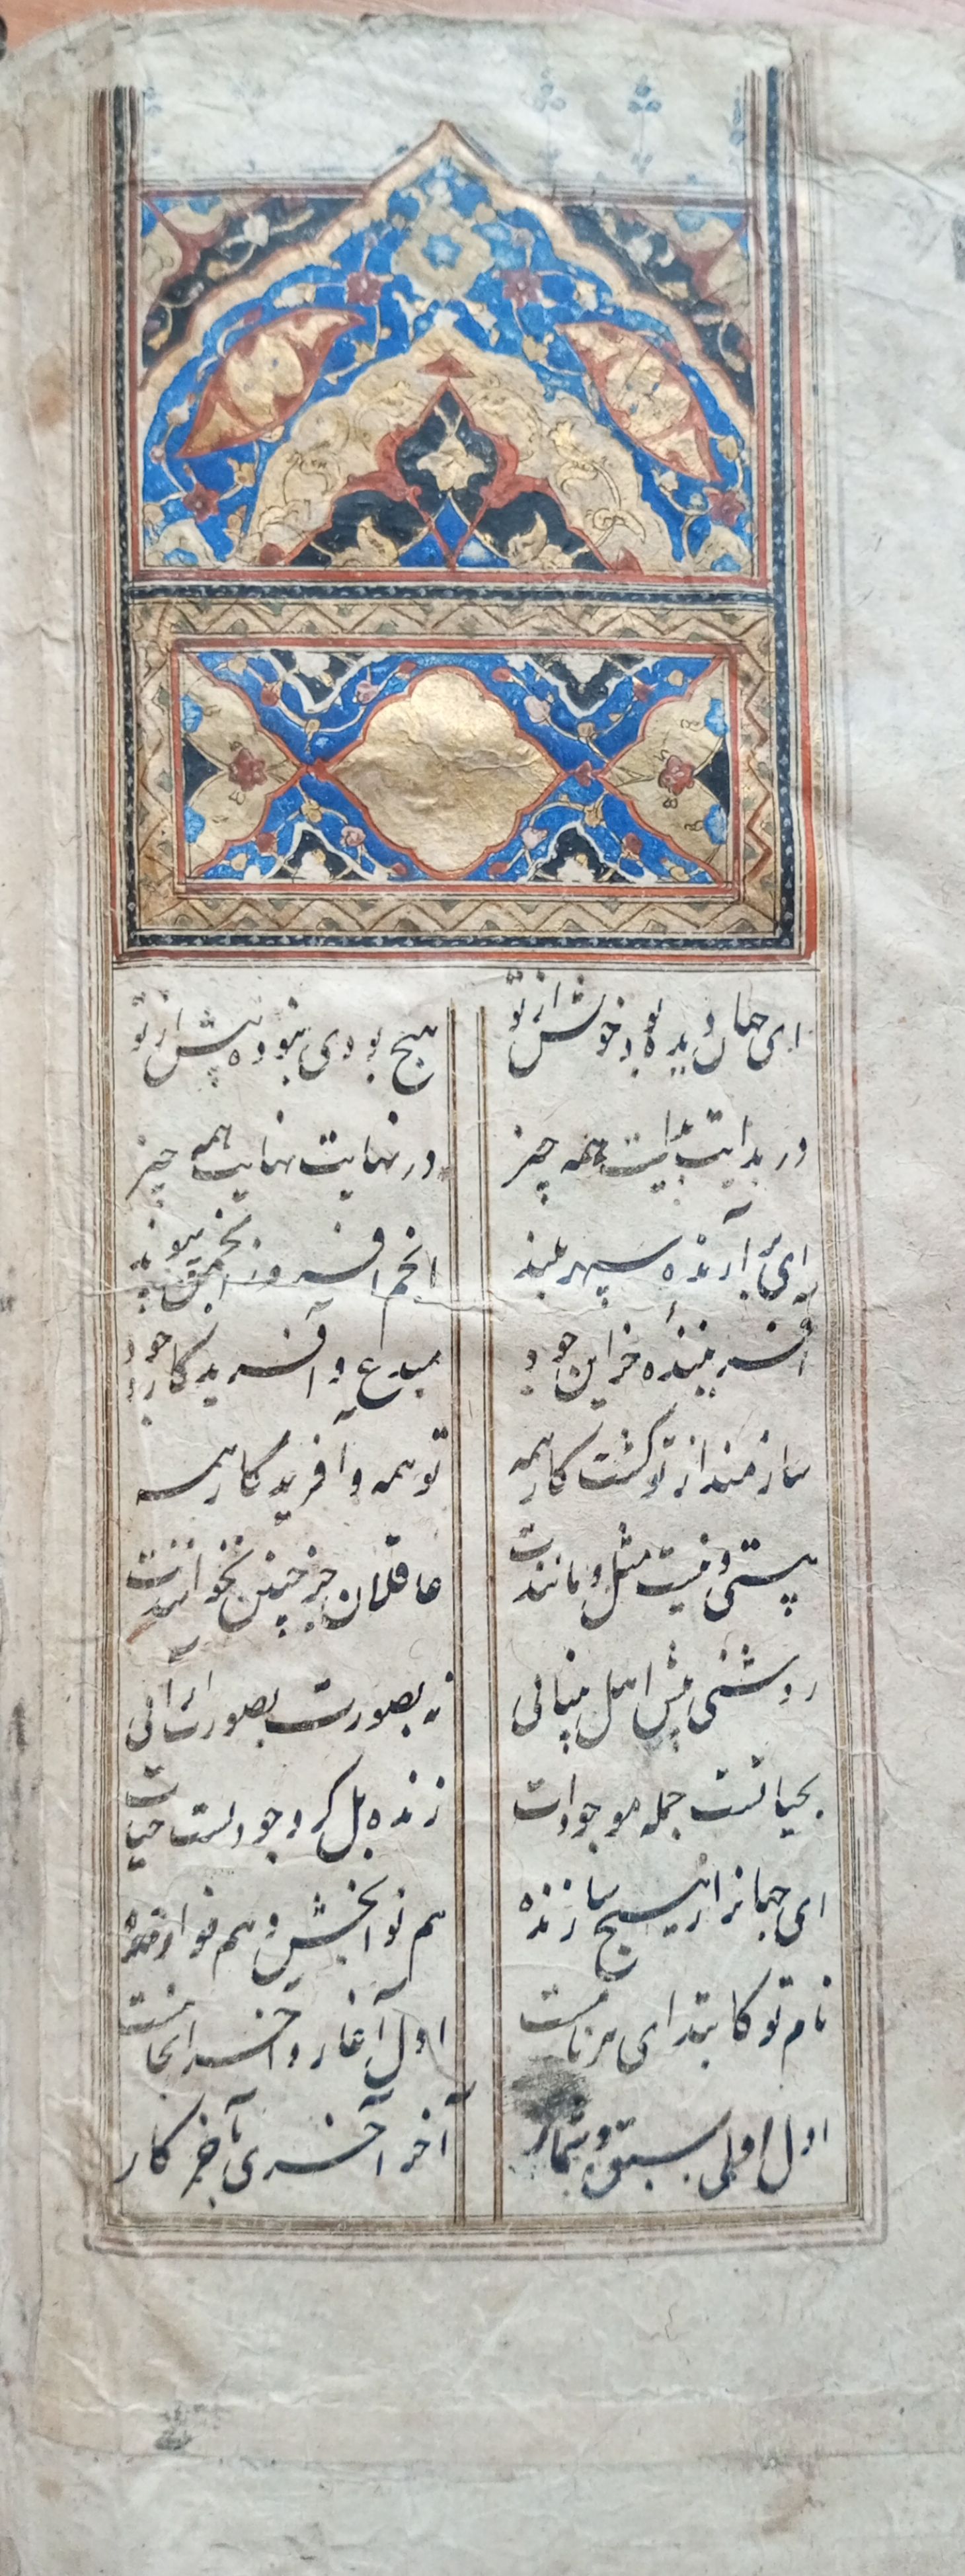 ای جهان دیده بود خویش از تو هیچ بودی نبوده پیش از تو
در بدایت بدایت همه چیز در نهایت نهایت همه چیز
ای برآرنده سپهر بلند انجم افروز و انجمن پیوند
آفریننده خزاین جود مبدع و آفریدگار وجود
سازمند از تو گشت کار همه تو همه و آفریدگار همه
هستی و نیست مثل و مانندت عاقلان جز چنین نخوانندت
روشنی پیش اهل بینائی نه بصورت بصورت آرائی
بحیاتست جمله موجودات زنده بلکز وجود تست حیات
ای جهانرا ز هیچ سازنده هم نوابخش و هم نوازنده
نام تو کابتدای هر نامست اول آغاز و آخر انجامست
اول اولی بسبق و شمار آخر آخری بآخر کار